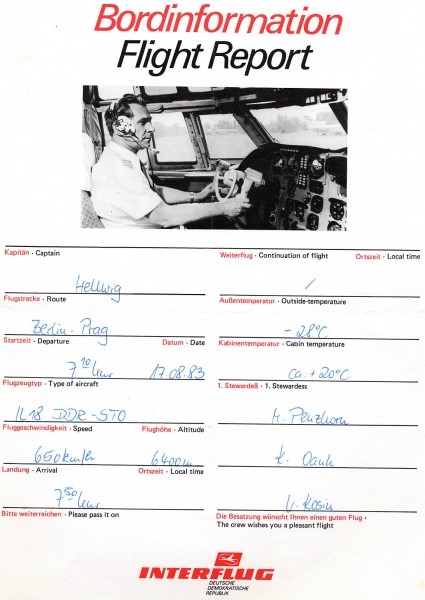 Bordinformation
Flight Report
Kapitän · Captain
Hellwig
Flugstrecke · Route
Berlin - Prag
Startzeit · Departure Datum · Date
7¹⁰ Uhr 17.08.83
Flugzeugtyp · Type of aircraft
IL 18 DDR-STO
Fluggeschwindigkeit · Speed Flughöhe · Altitude
650 km/h 6400 m
Landung · Arrival Ortszeit · Local time
7⁵⁰ Uhr
Bitte weiterreichen · Please pass it on
Weiterflug · Continuation of flight Ortszeit · Local time
/
Außentemperatur · Outside-temperature
- 28°C
Kabinentemperatur · Cabin temperature
ca. + 20°C
1. Stewardeß · 1. Stewardess
Penzhorn
K.
Kosin
Die Besatzung wünscht Ihnen einen guten Flug ·
The crew wishes you a pleasant flight
INTERFLUG
DEUTSCHE
DEMOKRATISCHE
REPUBLIK